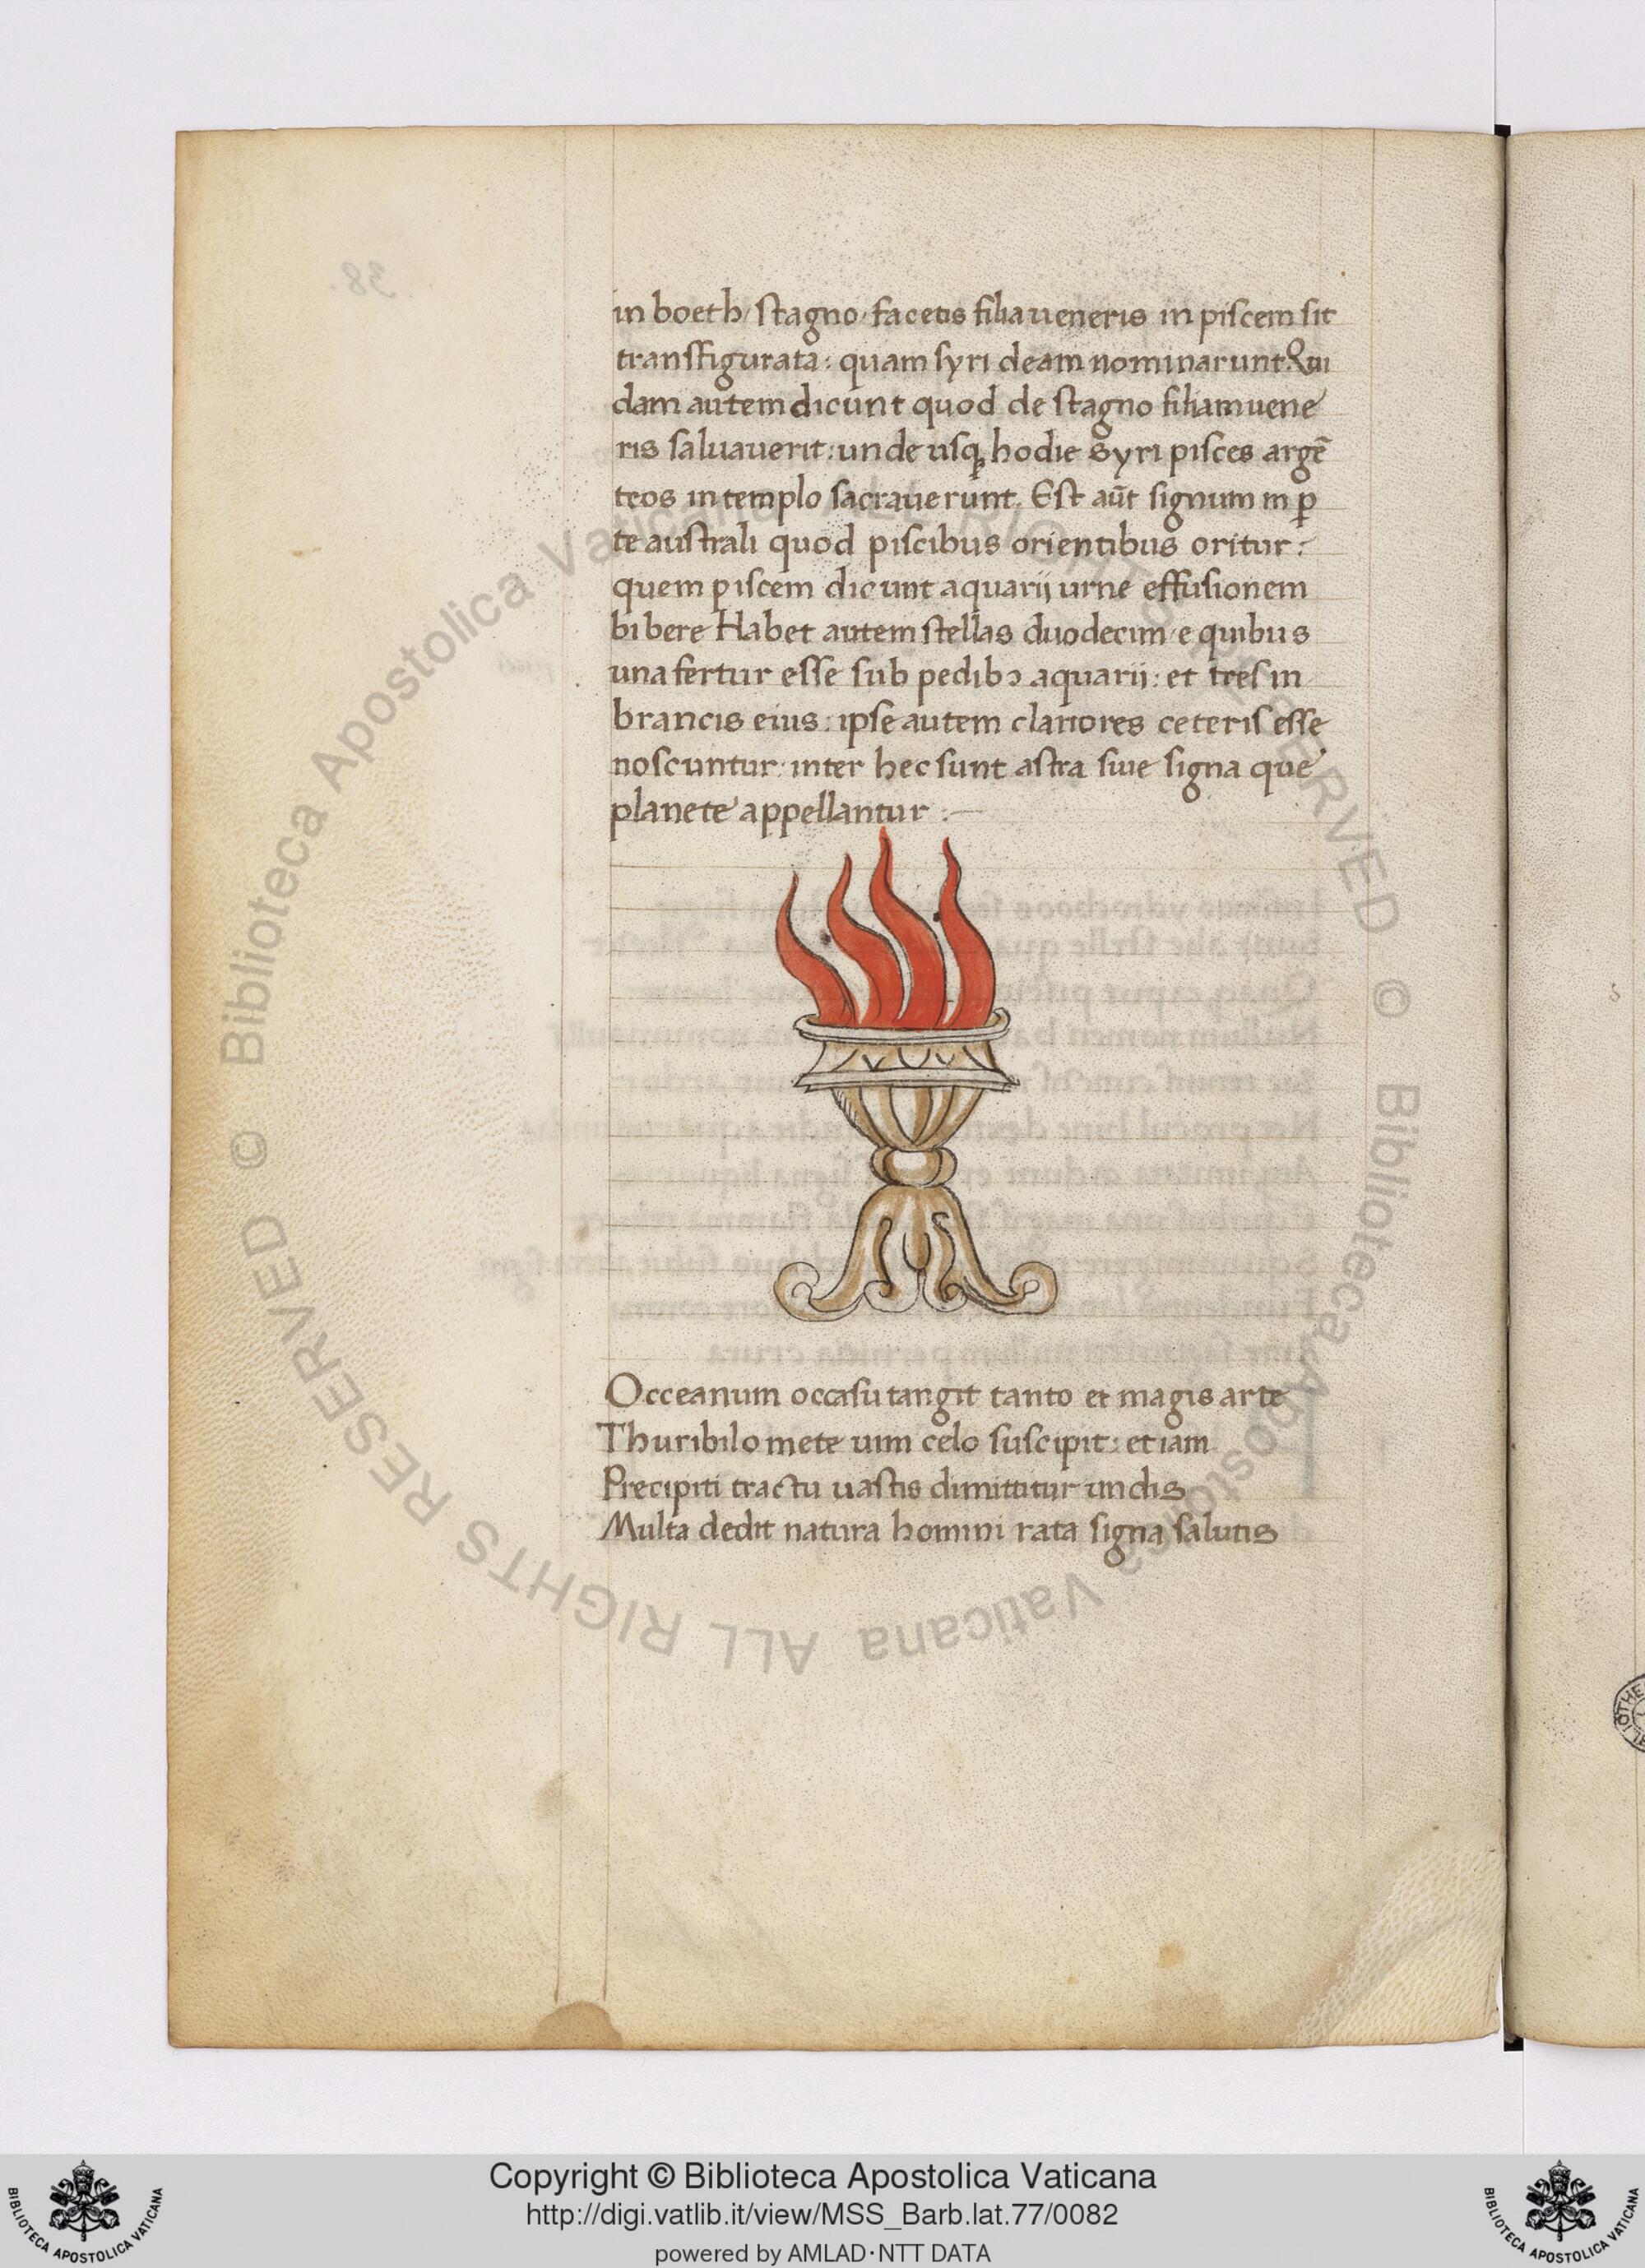 in boeth stagno facetis filia ueneris in piscem sit
transfigurata: quam syri deam nominarunt. Qui
dam autem dicunt quod de stagno filiam uene
ris saluauerit: unde usq; hodie syri pisces argē
teos in templo sacrauerunt. Est aūt signum in ꝑ
te australi quod piscibus orientibus oritur:
quem piscem dicunt aquarij urne effusionem
bibere Habet autem stellas duodecim e quibus
una fertur esse sub pedibꝰ aquarii: et tres in
brancis eius: ipse autem clariores ceteris esse
noscuntur: inter hec sunt astra siue signa que
planete appellantur :—
Occeanum occasu tangit tanto et magis arte
Thuribilo mete uim celo suscipit: etiam
Precipiti tractu uastis dimittitur undis
Multa dedit natura homini rata signa salutis
38.
© Biblioteca Apostolica Vaticana ALL RIGHTS RESERVED © Biblioteca Apostolica Vaticana ALL RIGHTS RESERVED
Copyright © Biblioteca Apostolica Vaticana
http://digi.vatlib.it/view/MSS_Barb.lat.77/0082
powered by AMLAD·NTT DATA
BIBLIOTECA APOSTOLICA VATICANA
BIBLIOTECA APOSTOLICA VATICANA